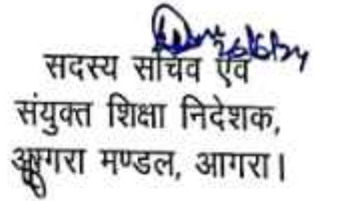 26/6/24
सदस्य सचिव एवं
संयुक्त शिक्षा निदेशक,
आगरा मण्डल, आगरा।